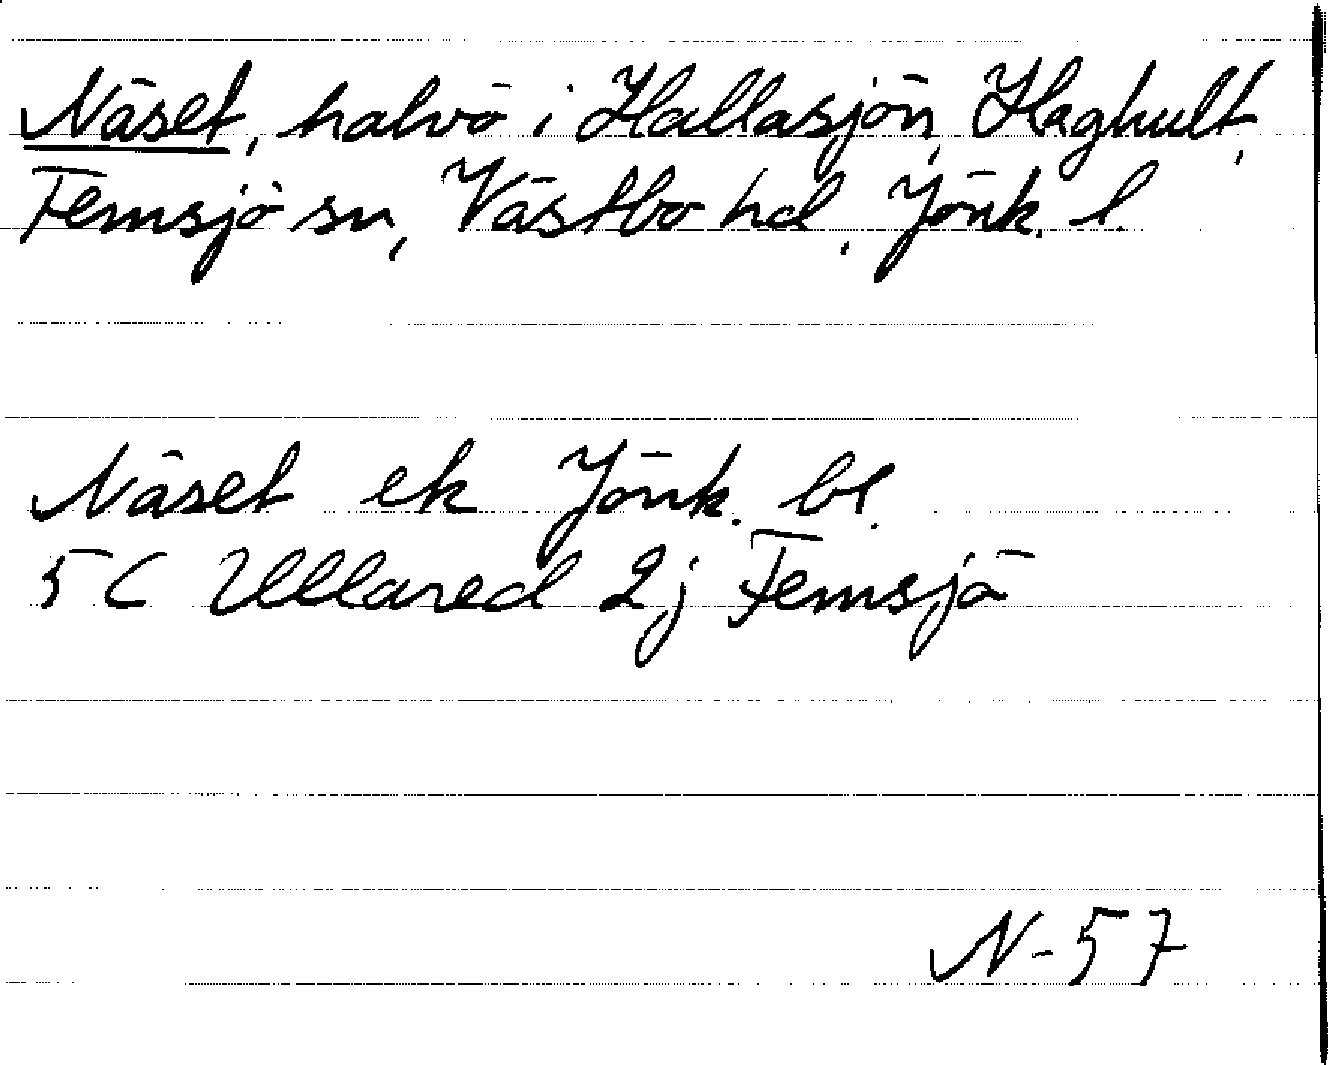 Näset, halvö i Hallasjön, Haghult,
Femsjö sn, Västbo hd, Jönk. l.
Näset ek Jönk. bl.
5C Ullared 2j Femsjö
N-57